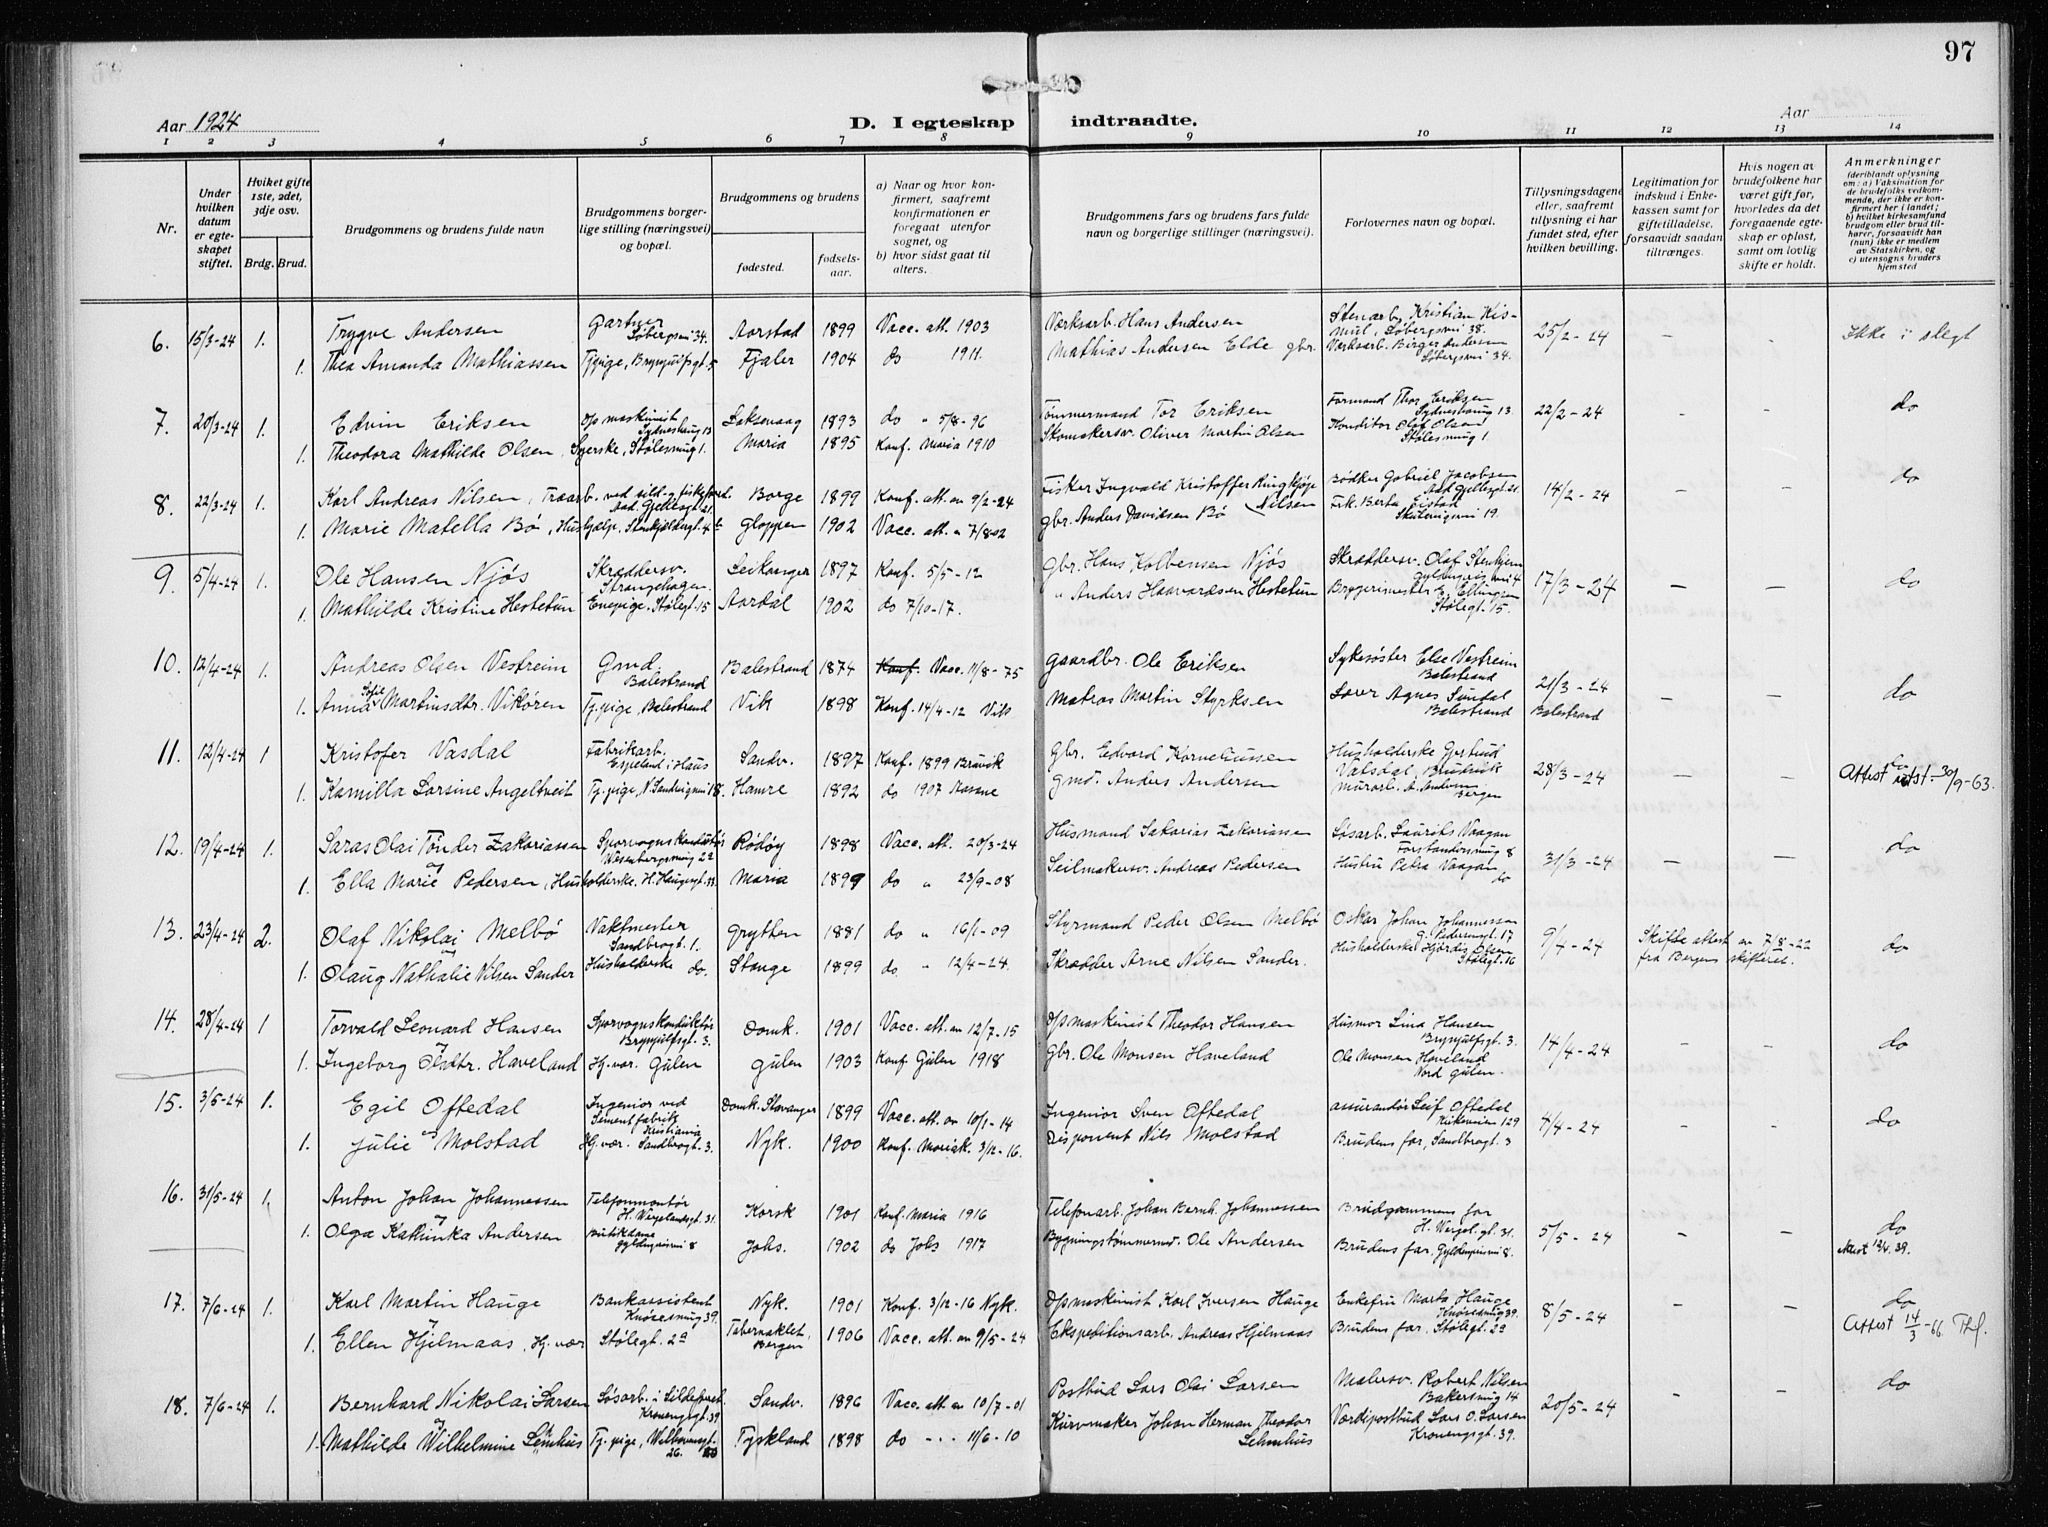 97
Aar 1924
D. I egteskap indtraadte.
Aar
1 2 3 4 5 6 7 8 9 10 11 12 13 14
Nr.
Under hvilken datum er egteskapet stiftet.
Hviket gifte 1ste, 2det, 3dje osv.
Brdg. Brud.
Brudgommens og brudens fulde navn
Brudgommens borgerlige stilling (næringsvei) og bopæl.
Brudgommens og brudens
fødested. fødselsaar.
a) Naar og hvor konfirmert, saafremt konfirmationen er foregaat utenfor sognet, og
b) hvor sidst gaat til alters.
Brudgommens fars og brudens fars fulde navn og borgerlige stillinger (næringsvei).
Forlovernes navn og bopæl.
Tillysningsdagene eller, saafremt tillysning ei har fundet sted, efter hvilken bevilling.
Legitimation for indskud i Enkekassen samt for giftetilladelse, forsaavidt saadan tiltrænges.
Hvis nogen av brudefolkene har været gift før, hvorledes da det foregaaende egteskap er opløst, samt om lovlig skifte er holdt.
Anmerkninger (deriblandt oplysning om: a) Vaksination for de brudefolks vedkommende, der ikke er konfirmert her i landet; b) hvilket kirkesamfund brudgom eller brud tilhører, forsaavidt han (hun) ikke er medlem av Statskirken, og c) utensogns bruders hjemsted
6. 15/3-24 1. Trygve Andersen Gartner Løbergsvei 34. Aarstad 1899 Vacc. att. 1903 Værksarb. Hans Andersen Stenarb. Kristian Kismul, Løbergsvei 38. 25/2-24 Ikke i slegt
1. Thea Amanda Mathiassen Tj.pige, Brynjulfsgt. 5 Fjaler 1904 do 1911. Mathias Andersen Elde gbr. Værksarb. Birger Andersen Løbergsvei 34.
7. 20/3-24 1. Edvin Eriksen D/p maskinist Sydneshaug 13 Laksevaag 1893 do " 5/8-96 Tømmermand Tor Eriksen Formand Thor Eriksen Sydneshaug 13. 22/2-24 - - do
1. Theodora Mathilde Olsen, Syerske, Stølesmug 1. Maria 1895 Konf. Maria 1910 Skomakersv. Oliver Martin Olsen Konditor Olaf Olsen Stølesmug 1
8. 22/3-24 1. Karl Andreas Nilsen, Traarb. ved sild- og fiskeford. Aad Gjellesgt. 21. Borge 1899 Konf. att. av 9/2-24 Fisker Ingvald Kristoffer Ringkjøp Nilsen Bødker Gabriel Jacobsen Aad Gjellesgt. 21. 14/2-24 - - do
1. Marie Matella Bø, Hushjælp, Stenkjellergt. 4b Gloppen 1902 Vacc. att. " 7/8-02 gbr. Anders Davidsen Bø Frk. Berta Eistad Skuteviksvei 19
9. 5/4-24 1. Ole Hansen Njøs Skreddersv. Strangehagen Leikanger 1897 Konf. 5/5-12 gbr. Hans Kolbensen Njøs Skræddersv. Olaf Stenhjem Gyldenpris vei 4 17/3-24 - - do
1. Mathilde Kristine Hestetun Enepige. Stølegt. 15 Aardal 1902 do 7/10-17. " Anders Haavardsen Hestetun Bryggerimester E. Ellingsen Stølegt. 15.
10. 12/4-24 1. Andreas Olsen Vestreim Gmd. Balestrand Balestrand 1874 Konf. Vacc. 11/8-75 gaardbr. Ole Eriksen Sykesøster Else Vestreim Balestrand 21/3-24 Balestrand - - do
1. Anna Sofie Martinsdtr. Vikøren Tj.pige, Balestrand Vik 1898 Konf. 14/4-12 Vik Matros Martin Styrksen Lærer Agnes Sundal Balestrand
11. 12/4-24 1 Kristofer Vasdal Fabrikarb. Espeland i Haus Sandv. 1897 Konf. 1899 Bruvik Gbr. Edvard Korneliussen Husholderske Gjertrud Vatsdal, Bruvik 28/3-24 - - do
1. Kamilla Larsine Angeltveit Tj.pige, N. Sandvigsvei 18. Hamre 1892 do 1907 Aasane gmd. Anders Andersen Murarb. A. Andersen Bergen Attest utst. 30/9-63.
12. 19/4-24 1. Saras Olai Tønder Zakariassen og Sporvognskonduktør Wesenbergsmug 22 Rødøy 1898 Vacc. att. 20/3-24 Husmand Sakarias Zakariassen Løsarb. Laurits Vaagan Forstandersmug 8 31/3-24 - - do
1. Ella Marie Pedersen, Husholderske, H. Haugesgt. 33. Maria 1899 do " 23/9-08 Seilmakersv. Andreas Pedersen Hustru Petra Vaagan do
13. 23/4-24 2. Olaf Nikolai Melbø og Vaktmester Sandbrogt. 1. Grytten 1881 do " 16/1-09 Styrmand Peder Olsen Melbø Oskar Johan Johannessen G. Pedersensgt. 17 9/4-24 Skifte attest av 7/8-22 fra Bergens skifteret. do
1. Olaug Nathalie Nilsen Sander Husholderske do. Stange 1899 do " 12/4-24. Skrædder Arne Nilsen Sander. Husholderske Hjørdis Olsen Stølegt. 16
14. 28/4-24 1 Torvald Leonard Hansen og Sporvognskonduktør Brynjulfsgt. 3. Domk. 1901 Vacc. att. av 12/7-15 D/p maskinist Theodor Hansen Husmor Lina Hansen Brynjulfsgt. 3. 14/4-24 - - do
1. Ingeborg Olsdtr. Haveland Hj. vær. Gulen Gulen 1903 Konf Gulen 1918 Gbr. Ole Monsen Haveland Ole Monsen Haveland Nord Gulen.
15. 3/5-24 1. Egil Oftedal og Ingeniør ved Cementfabrik Kristiania Domk. Stavanger 1899 Vacc. att. av 10/1-14 Ingeniør Sven Oftedal Assurandør Leif Oftedal Kirkeveien 129 4/4-24 - - do
1. Julie Molstad Hj. vær. Sandbrogt. 3. Nyk. 1900 Konf. Mariak. 3/12-16. Disponent Nils Molstad Brudens far, Sandbrogt. 3
16. 31/5-24 1. Anton Johan Johannessen og Telefonmontør H. Wergelandsgt. 31. Korsk 1901 Konf. Maria 1916 Telefonarb. Johan Bernh. Johannessen Brudgommens far H. Wergel. gt. 31. 5/5-24 - - do
1. Olga Kathinka Andersen Butikdame Gyldenprisvei 8 Johs. 1902 do Johs 1917 Bygningstømmermd. Ole Andersen Brudens far, Gyldenprisvei 8. Attest 12/4.39.
17. 7/6-24 1. Karl Martin Hauge og Bankassistent Knøsesmug 39. Nyk. 1901 Konf. 3/12-16 Nyk. D/p maskinist Karl Iversen Hauge Enkefru Marta Hauge Knøsesmug 39. 8/5-24 - - do
1. Ellen Hjelmaas, Hj. vær Stølegt. 2a Tabernaklet, Bergen 1906 Vacc. att. av 9/5-24 Ekspeditionsarb. Andreas Hjelmaas Brudens far, Stølegt. 2a Attest 14/3-66. Thf.
18. 7/6-24 1. Bernhard Nikolai Larsen og Løsarb. i Sildeforretn. Kronengsgt. 39 Sandv. 1896 Vacc. att. av 10/7-01 Postbud Lars Olai Larsen Malersv. Robert Nilsen Bakersmug 14 20/5-24 - - do
1. Mathilde Wilhelmine Lemhus Tj. pige, Welhavensgt. 26. Tyskland 1898 do - - - 11/6-10 Kurvmaker Johan Herman Theodor Lehmhus Verdipostbud Lars O. Larsen Kronengsgt. 39.